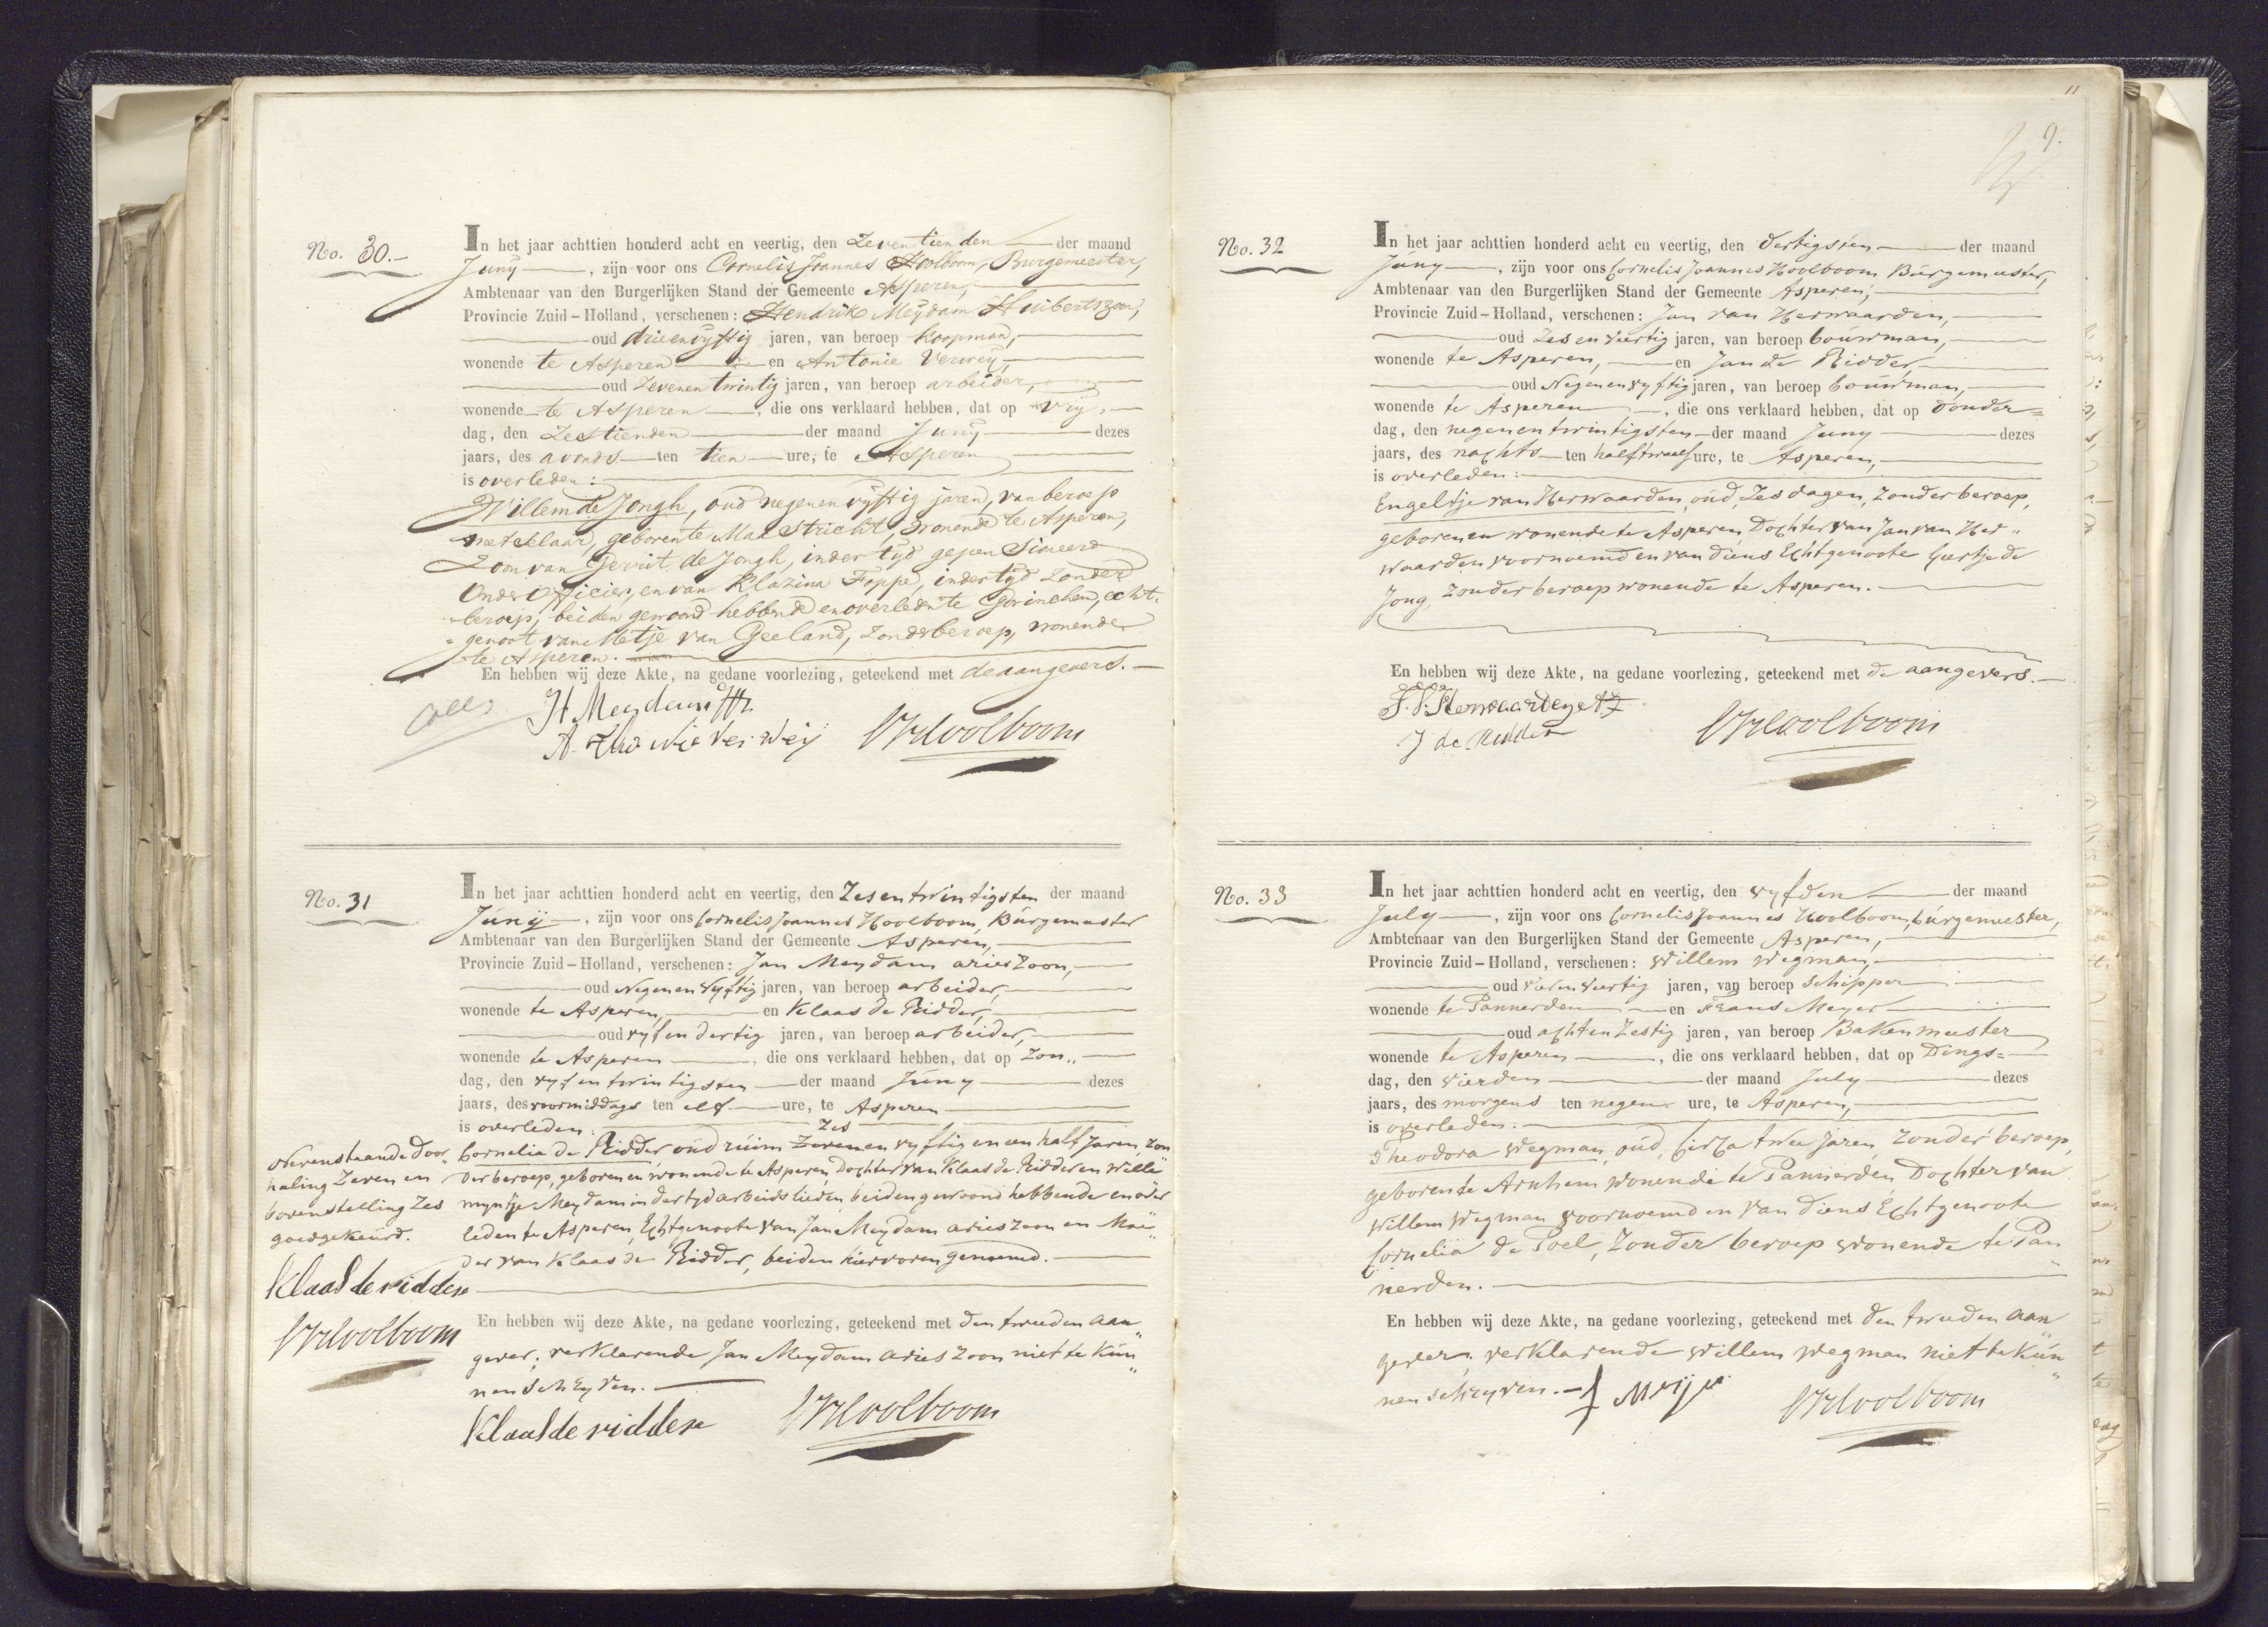 No. 30.-
In het jaar achttien honderd acht en veertig, den Zeventienden der maand
Juny, zijn voor ons Cornelis Joannes Hoolboom, Burgemeester,
Ambtenaar van den Burgerlijken Stand der Gemeente Asperen,
Provincie Zuid-Holland, verschenen: Hendrik Meydam Huibertszoon,
oud drieenvyftig jaren, van beroep koopman,
wonende te Asperen en Antonie Verwey,
oud Zevenentwintig jaren, van beroep arbeider,
wonende te Asperen, die ons verklaard hebben, dat op Vry-
dag, den Zestienden der maand Juny dezes
jaars, des avonds ten tien ure, te Asperen
is overleden:
Willem de Jongh, oud negenenvyftig jaren, van beroep
metselaar, geboren te Maastricht, wonende te Asperen,
Zoon van Gerrit de Jongh, indertyd gepensioneerd
Onderofficier, en van Klazina Foppe, indertyd zonder
beroep, beiden gewoond hebbende en overleden te Gorinchem, echt-
genoot van Metje van Geeland, zonder beroep, wonende
te Asperen.
En hebben wij deze Akte, na gedane voorlezing, geteekend met de aangevers.
H Meydam Hz
A. Verweij
CJHoolboom
No. 31
In het jaar achttien honderd acht en veertig, den Zesentwintigsten der maand
Juny, zijn voor ons Cornelis Joannes Hoolboom, Burgemeester
Ambtenaar van den Burgerlijken Stand der Gemeente Asperen,
Provincie Zuid-Holland, verschenen: Jan Meydam arieszoon,
oud Negenenvyftig jaren, van beroep arbeider,
wonende te Asperen, en Klaas de Ridder,
oud vyfendertig jaren, van beroep arbeider,
wonende te Asperen, die ons verklaard hebben, dat op Zon„
dag, den vyfentwintigsten der maand Juny dezes
jaars, des voormiddags ten elf ure, te Asperen
is overleden:
Zes
Cornelia de Ridder oud ruim Zevenenvyftig en een half Jaren, zon
der beroep, geboren en wonende te Asperen, Dochter van Klaas de Ridder en Wille
myntje Meydam in der tyd arbeidslieden, beiden gewoond hebbende en over
leden te Asperen, Echtgenoote van Jan Meydam arieszoon en Moe„
der van Klaas de Ridder, beiden hiervoren genoemd.
Nevenstaande door„
haling Zeven en
bovenstelling Zes
goedgekeurd.
Klaas de ridder
CJHoolboom
En hebben wij deze Akte, na gedane voorlezing, geteekend met den tweeden aan„
gever; verklarende Jan Meydam arieszoon niet te kun„
nen schryven.
Klaas de ridder
CJHoolboom
11
9.
No. 32
In het jaar achttien honderd acht en veertig, den dertigsten der maand
Juny, zijn voor ons Cornelis Joannes Hoolboom Burgemeester,
Ambtenaar van den Burgerlijken Stand der Gemeente Asperen,
Provincie Zuid-Holland, verschenen: Jan van Herwaarden,
oud Zesenveertig jaren, van beroep bouwman,
wonende te Asperen, en Jan de Ridder
oud Negenenvyftig jaren, van beroep bouwman,
wonende te Asperen, die ons verklaard hebben, dat op donder=
dag, den negenentwintigsten der maand Juny dezes
jaars, des nachts ten half twaalf ure, te Asperen,
is overleden:
Engeltje van Herwaarden, oud, Zes dagen, zonder beroep,
geboren en wonende te Asperen, Dochter van Jan van Her„
waarden voornoemd en van diens Echtgenoote Geertje de
Jong, zonder beroep wonende te Asperen.
En hebben wij deze Akte, na gedane voorlezing, geteekend met de aangevers.
J de Ridder
CJHoolboom
No. 33
In het jaar achttien honderd acht en veertig, den vyfden der maand
July, zijn voor ons Cornelis Joannes Hoolboom, burgemeester,
Ambtenaar van den Burgerlijken Stand der Gemeente Asperen,
Provincie Zuid-Holland, verschenen: Willem Wegman,
oud vierenveertig jaren, van beroep Schipper
wonende te Pannerden en Frans Meyer
oud achtenzestig jaren, van beroep Bakenmeester
wonende te Asperen, die ons verklaard hebben, dat op Dings=
dag, den vierden der maand July dezes
jaars, des morgens ten negen ure, te Asperen,
is overleden:
Theodora Wegman, oud, Circa twee Jaren, zonder beroep,
geboren te Arnhem wonende te Pannerden, Dochter van
Willem Wegman voornoemd en van diens Echtgenoote
Cornelia de Poel, zonder beroep wonende te Pan„
nerden.
En hebben wij deze Akte, na gedane voorlezing, geteekend met den tweeden aan„
gever; verklarende Willem Wegman niet te kun„
nen schryven.
f Meijer
CJHoolboom